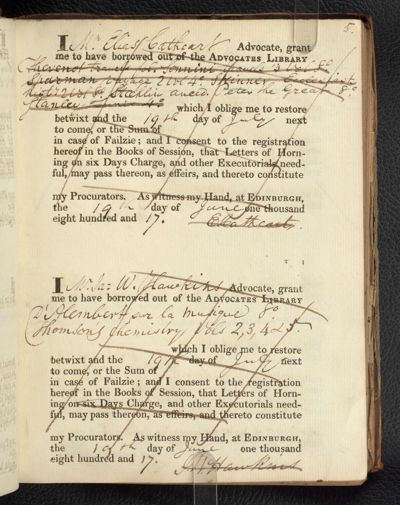 5.
I Mr. Elias Cathcart Advocate, grant
me to have borrowed out of the ADVOCATES LIBRARY
Thevenot 8o
Sparrman 2 vols 4o Skinner
Staehlin anecd. Peter the Great 8o
Stanley which I oblige me to restore
betwixt and the 19th day of July next
to come, or the Sum of
in case of Failzie; and I consent to the registration
hereof in the Books of Session, that Letters of Horn-
ing on six Days Charge, and other Executorials need-
ful, may pass thereon, as effeirs, and thereto constitute
my Procurators. As witness my Hand, at EDINBURGH,
the 19th day of June one thousand
eight hundred and 17. E Cathcart
I Mr. Jas: W. Hawkins Advocate, grant
me to have borrowed out of the ADVOCATES LIBRARY
D'Alembert sur la musique 8o
Thomsons chemistry Vols 2, 3, 4 & 5.
which I oblige me to restore
betwixt and the 19th day of July next
to come, or the Sum of
in case of Failzie; and I consent to the registration
hereof in the Books of Session, that Letters of Horn-
ing on six Days Charge, and other Executorials need-
ful, may pass thereon, as effeirs, and thereto constitute
my Procurators. As witness my Hand, at EDINBURGH,
the 19th day of June one thousand
eight hundred and 17. J W Hawkins